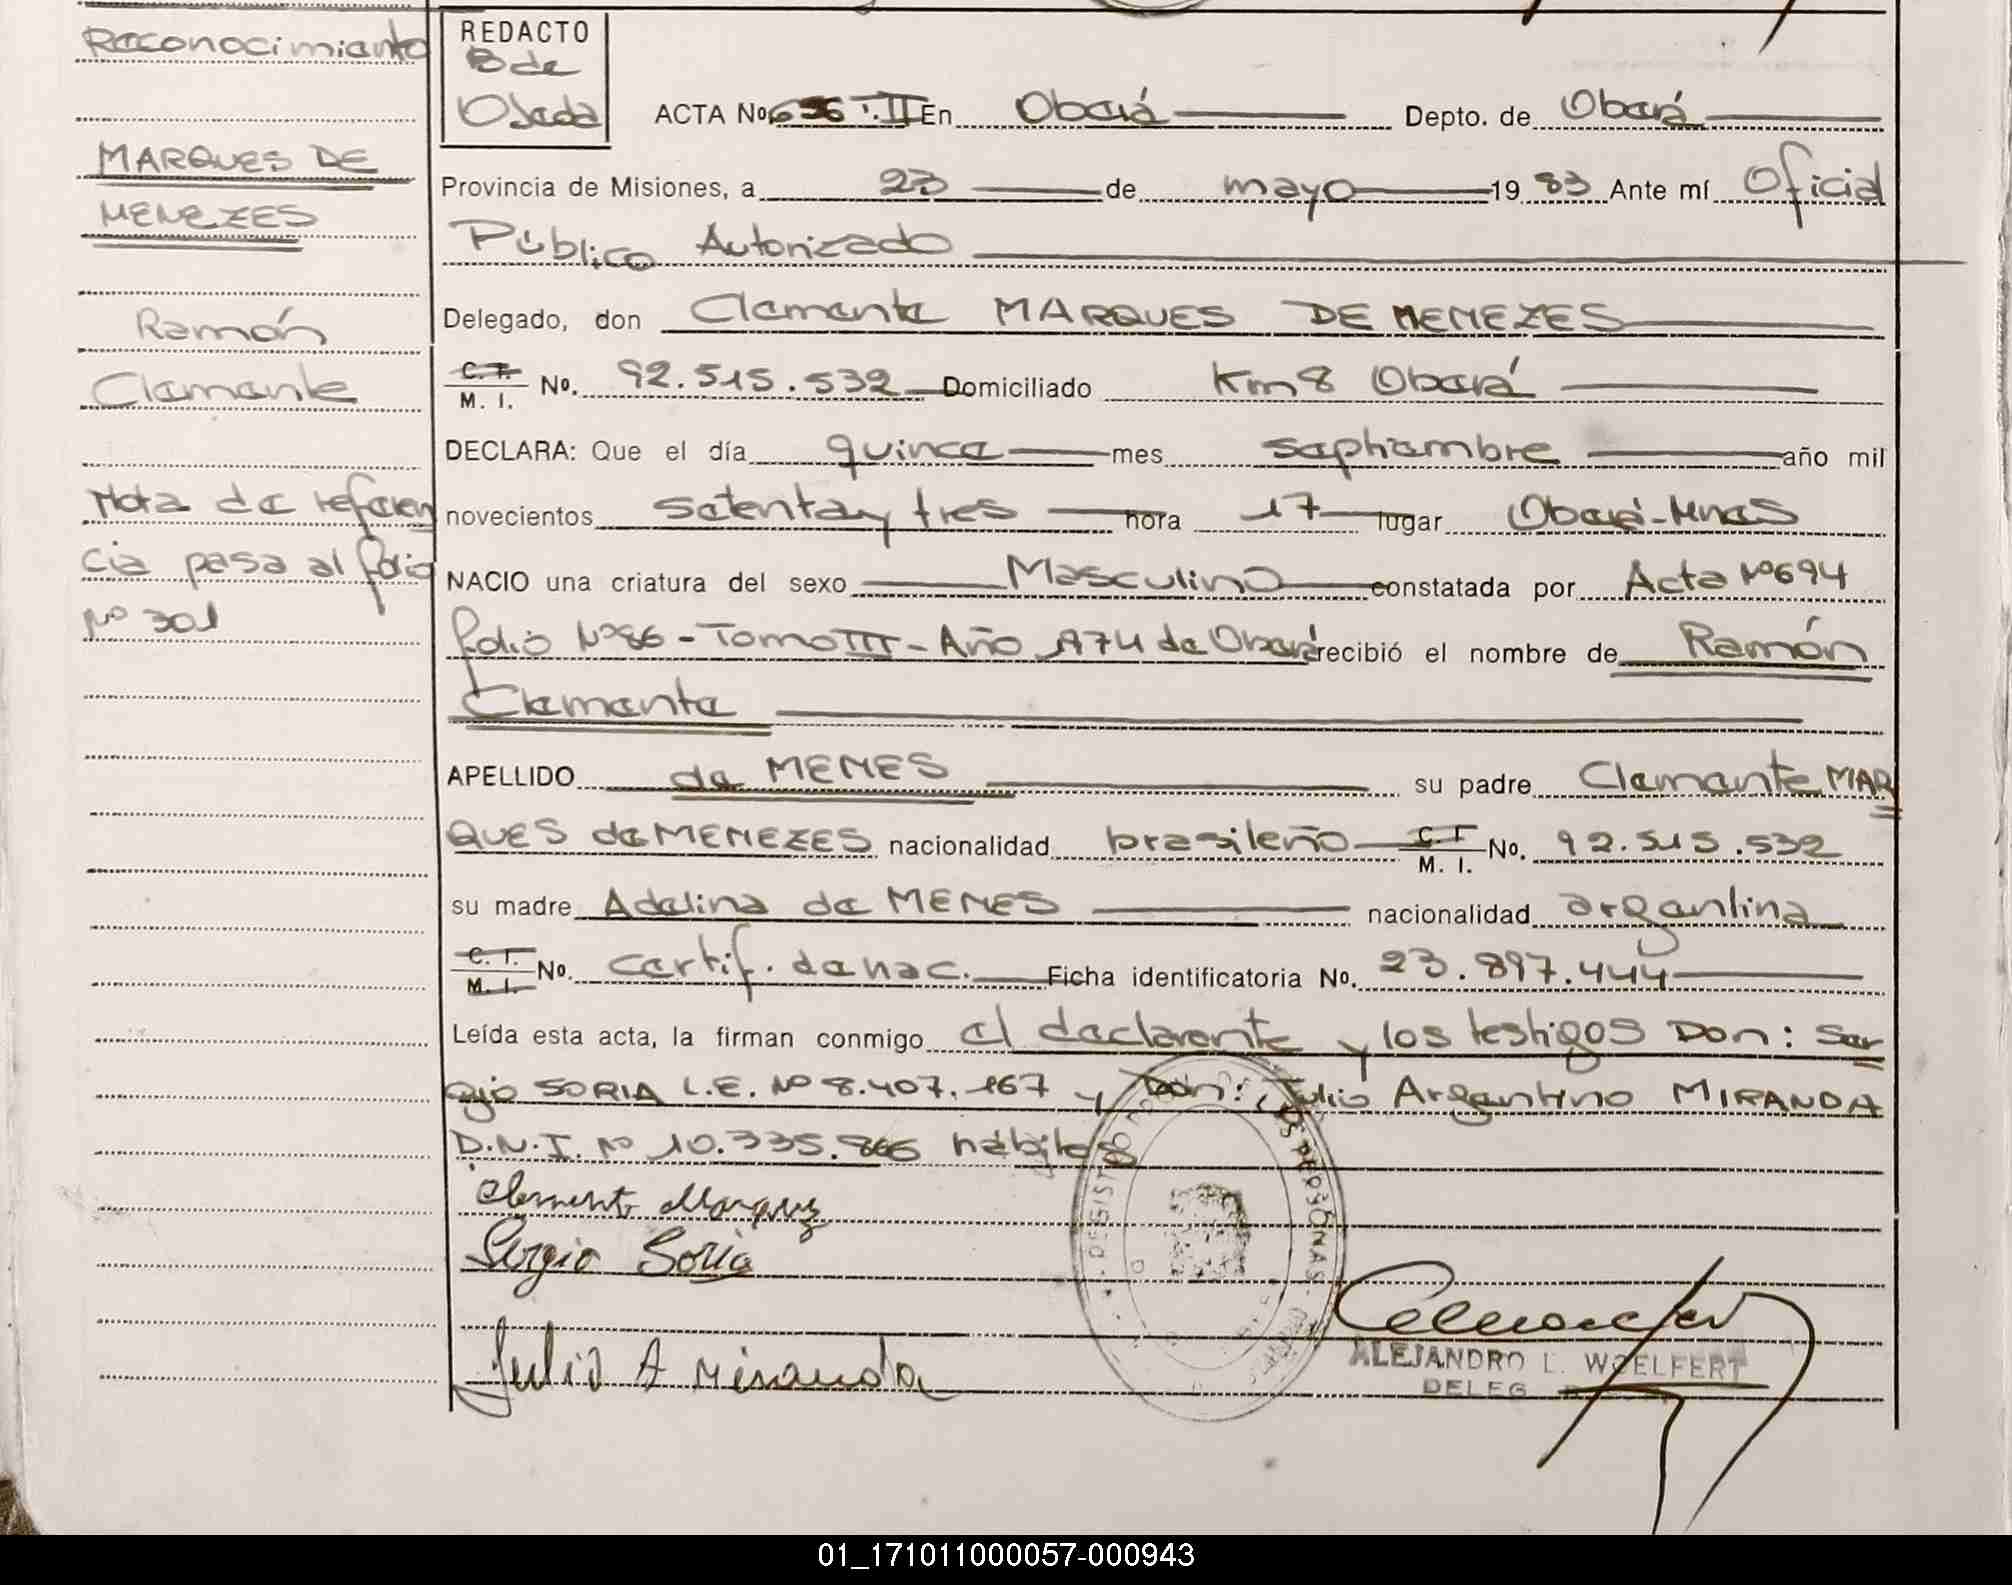 Reconocimiento
MARQUES DE
MENEZES
Ramón
Clemente
Nota de referen
cia pasa al folio
Nº 301
REDACTO
B de
Ojeda
ACTA No. T.II En Oberá Depto. de Oberá
Provincia de Misiones, a 23 de mayo 19 83 Ante mí Oficial
Público Autorizado
Delegado, don Clemente MARQUES DE MENEZES
C. I.
M. I. No. 92.515.532 Domiciliado Km 8 Oberá
DECLARA: Que el día quince mes septiembre año mil
novecientos setenta y tres hora 17 lugar Oberá-Mnes
NACIO una criatura del sexo Masculino constatada por Acta Nº 694
folio Nº 86 - Tomo III - Año 1974 de Oberá recibió el nombre de Ramón
Clemente
APELLIDO de MENES su padre Clemente MAR
QUES de MENEZES nacionalidad brasileño C. I.
M. I. No. 92.515.532
su madre Adelina de MENES nacionalidad argentina
C. I.
M. I. No. certif. de nac. Ficha identificatoria No. 23.897.444
Leída esta acta, la firman conmigo el declarante y los testigos Don: Ser
gio SORIA L.E. Nº 8.407.167 y Don: Julio Argentino MIRANDA
D.N.I. Nº 10.335.866 hábiles
Clemente Marquez
Sergio Soria
Julio A Miranda
ALEJANDRO L. WOELFERT
DELEG
01_171011000057-000943